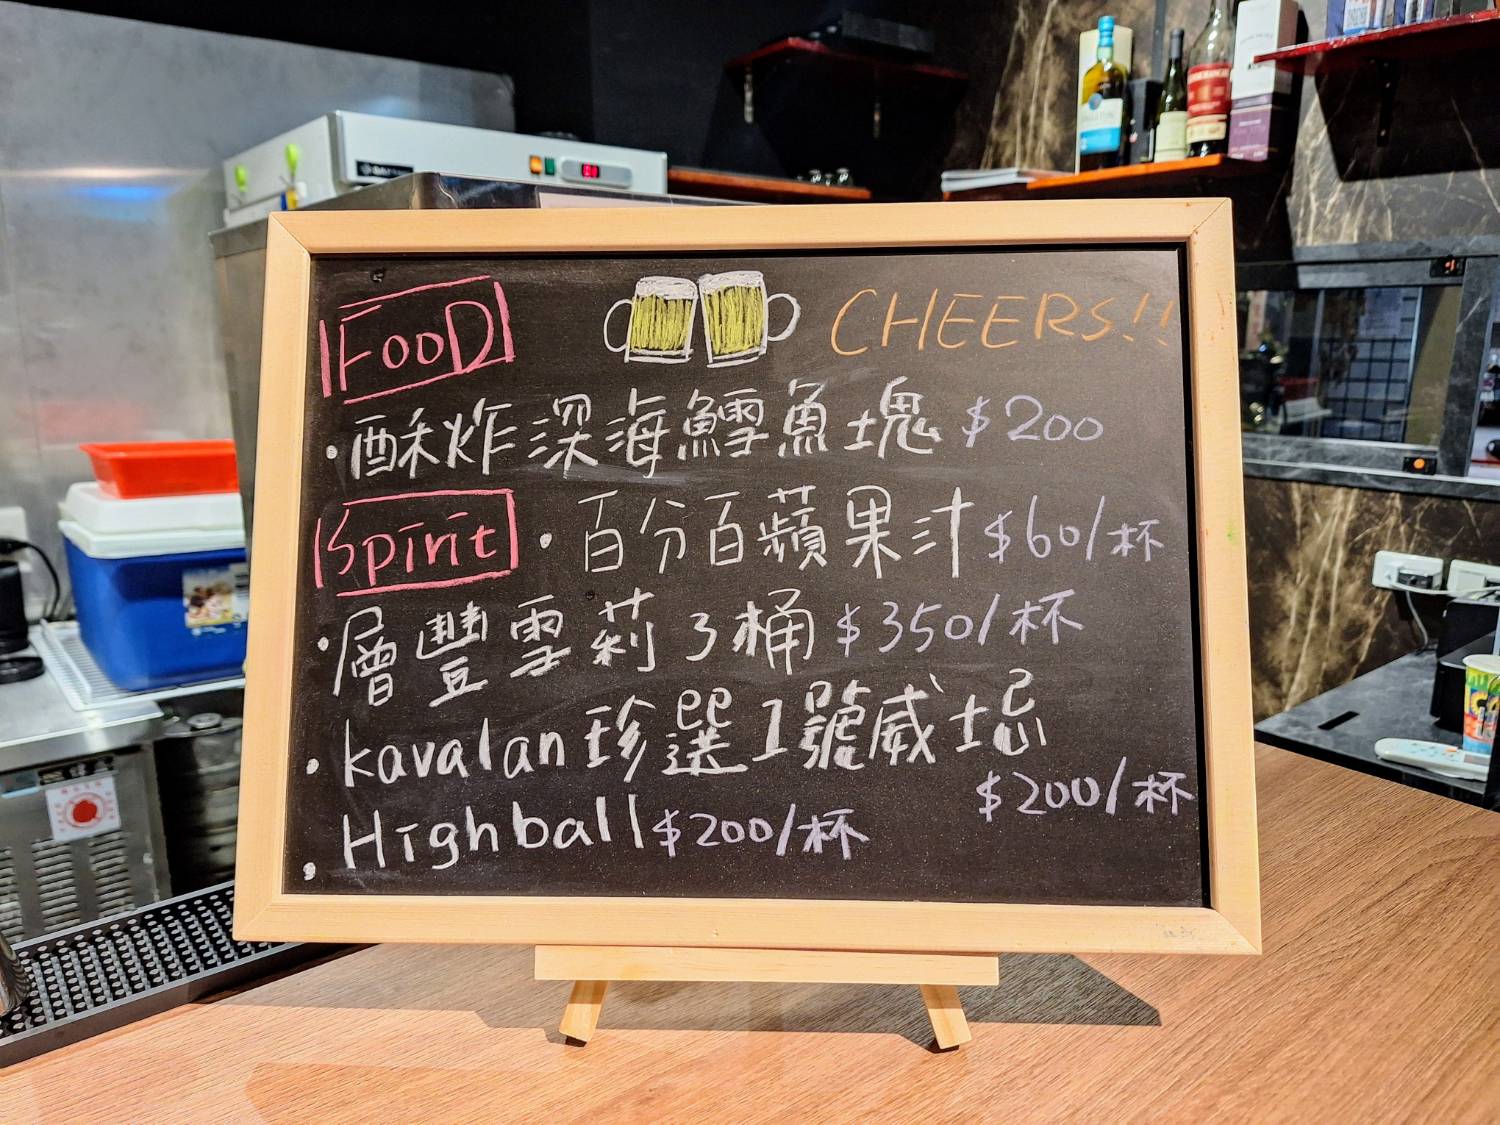 FooD CHEERS!!
·酥炸深海鱈魚塊 $200
Spirit ·百分百蘋果汁 $60/杯
·層豐雪莉3桶 $350/杯
·kavalan 珍選1號威士忌
$200/杯
·Highball $200/杯